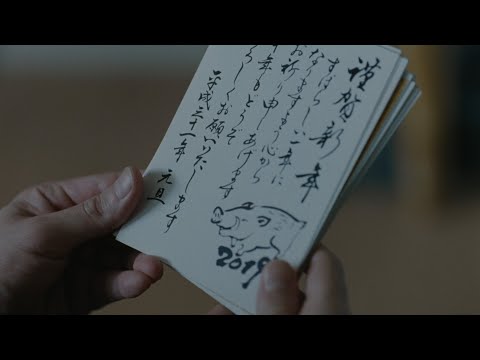 謹賀新年
すばらしい一年に
なりますよう心から
お祈り申しあげます
今年もどうぞ
よろしくお願いいたします
平成三十一年
元旦
2019